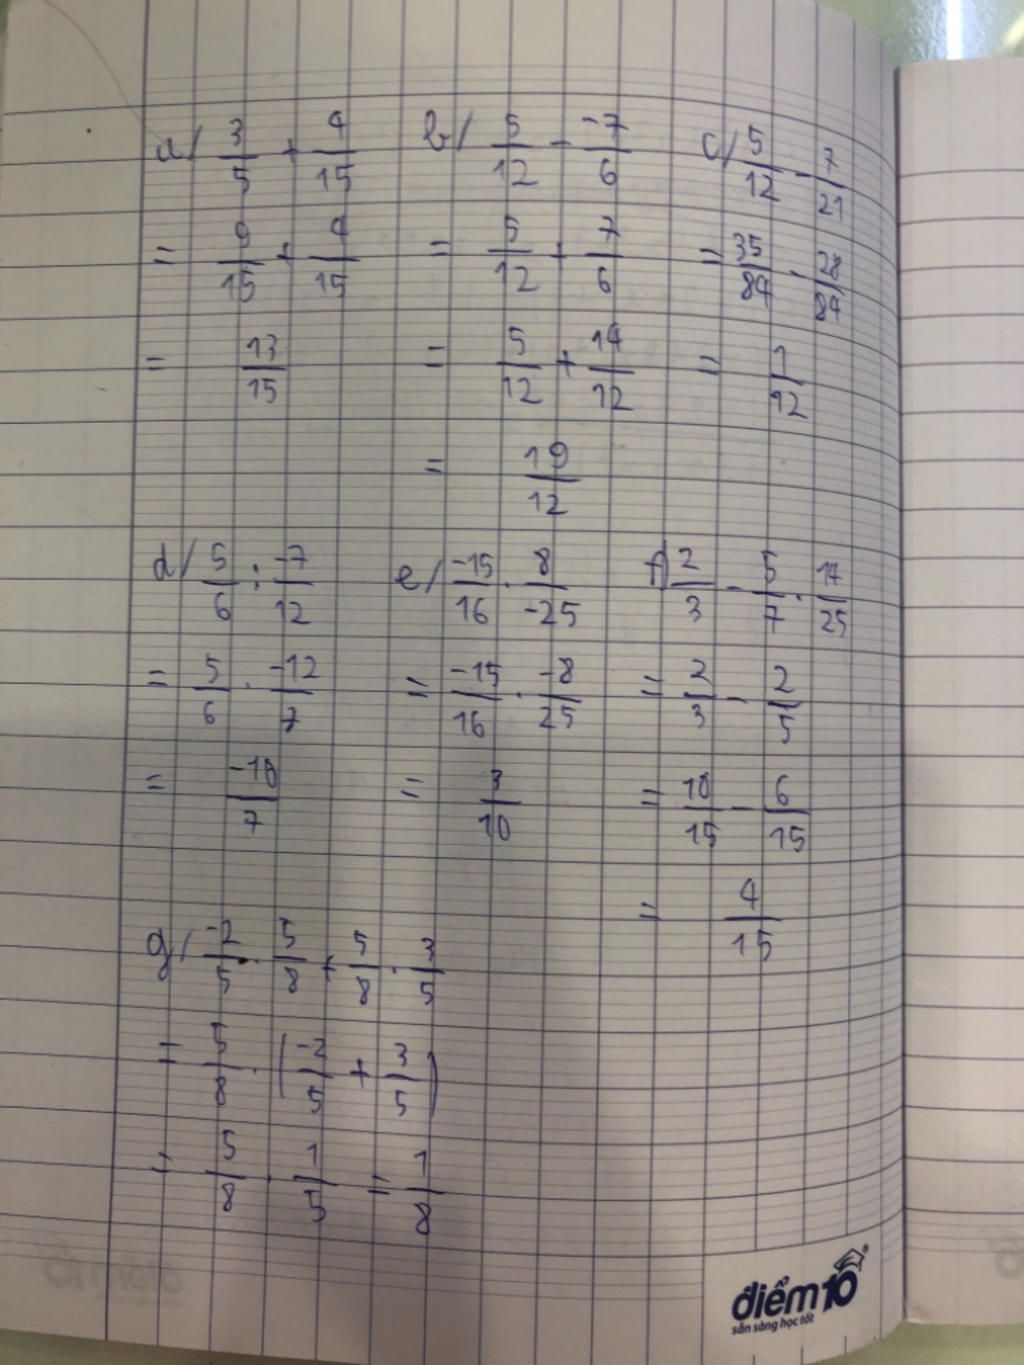 a/ 3/5 + 4/15
= 9/15 + 4/15
= 13/15
b/ 5/12 - -7/6
= 5/12 + 7/6
= 5/12 + 14/12
= 19/12
c/ 5/12 - 7/21
= 35/84 - 28/84
= 1/12
d/ 5/6 : -7/12
= 5/6 . -12/7
= -10/7
e/ -15/16 . 8/-25
= -15/16 . -8/25
= 3/10
f) 2/3 - 5/7 . 14/25
= 2/3 - 2/5
= 10/15 - 6/15
= 4/15
g/ -2/5 . 5/8 + 5/8 . 3/5
= 5/8 . (-2/5 + 3/5)
= 5/8 . 1/5 = 1/8
điểm10
sẵn sàng học tốt